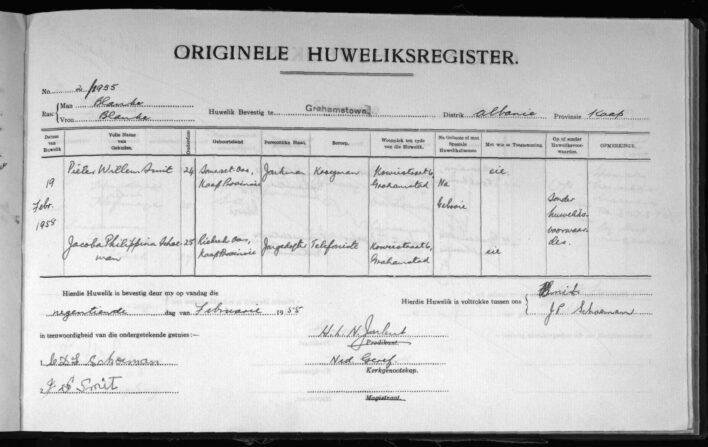 ORIGINELE HUWELIKSREGISTER.
No. 2/1955
Ras: { Man Blanke
Vrou Blanke
Huwelik Bevestig te Grahamstown Distrik Albanie Provinsie Kaap
Datum van Huwelik
Volle Name van Gehudes.
Ouderdom
Geboorteland
Persoonlike Staat.
Beroep.
Woonplek ten tyde van die Huwelik.
Na Geboois of met Spesiale Huwelikslisensie
Met wie se Toestemming.
Op of sonder Huweliksvoorwaarden.
OPMERKINGS.
19 Febr. 1955
Pieter Willem Smit 24 Somerset-Oos, Kaap Provinsie Jonkman Grahamstad eie
Na Gebooie
sonder huweliksvoorwaardes.
Jacoba Philippina Schoeman 25 Kaap Provinsie Jongedogter Telefoniste Grahamstad eie
Hierdie Huwelik is bevestig deur my op vandag die
negentiende dag van Februarie 1955
in teenwoordigheid van die ondergetekende getuies:—
Hierdie Huwelik is voltrokke tussen ons { Smit
JP Schoeman
H. L. N.
Predikant.
Ned Geref
Kerkgenootskap.
Magistraat.
1. Schoeman
2. Smit